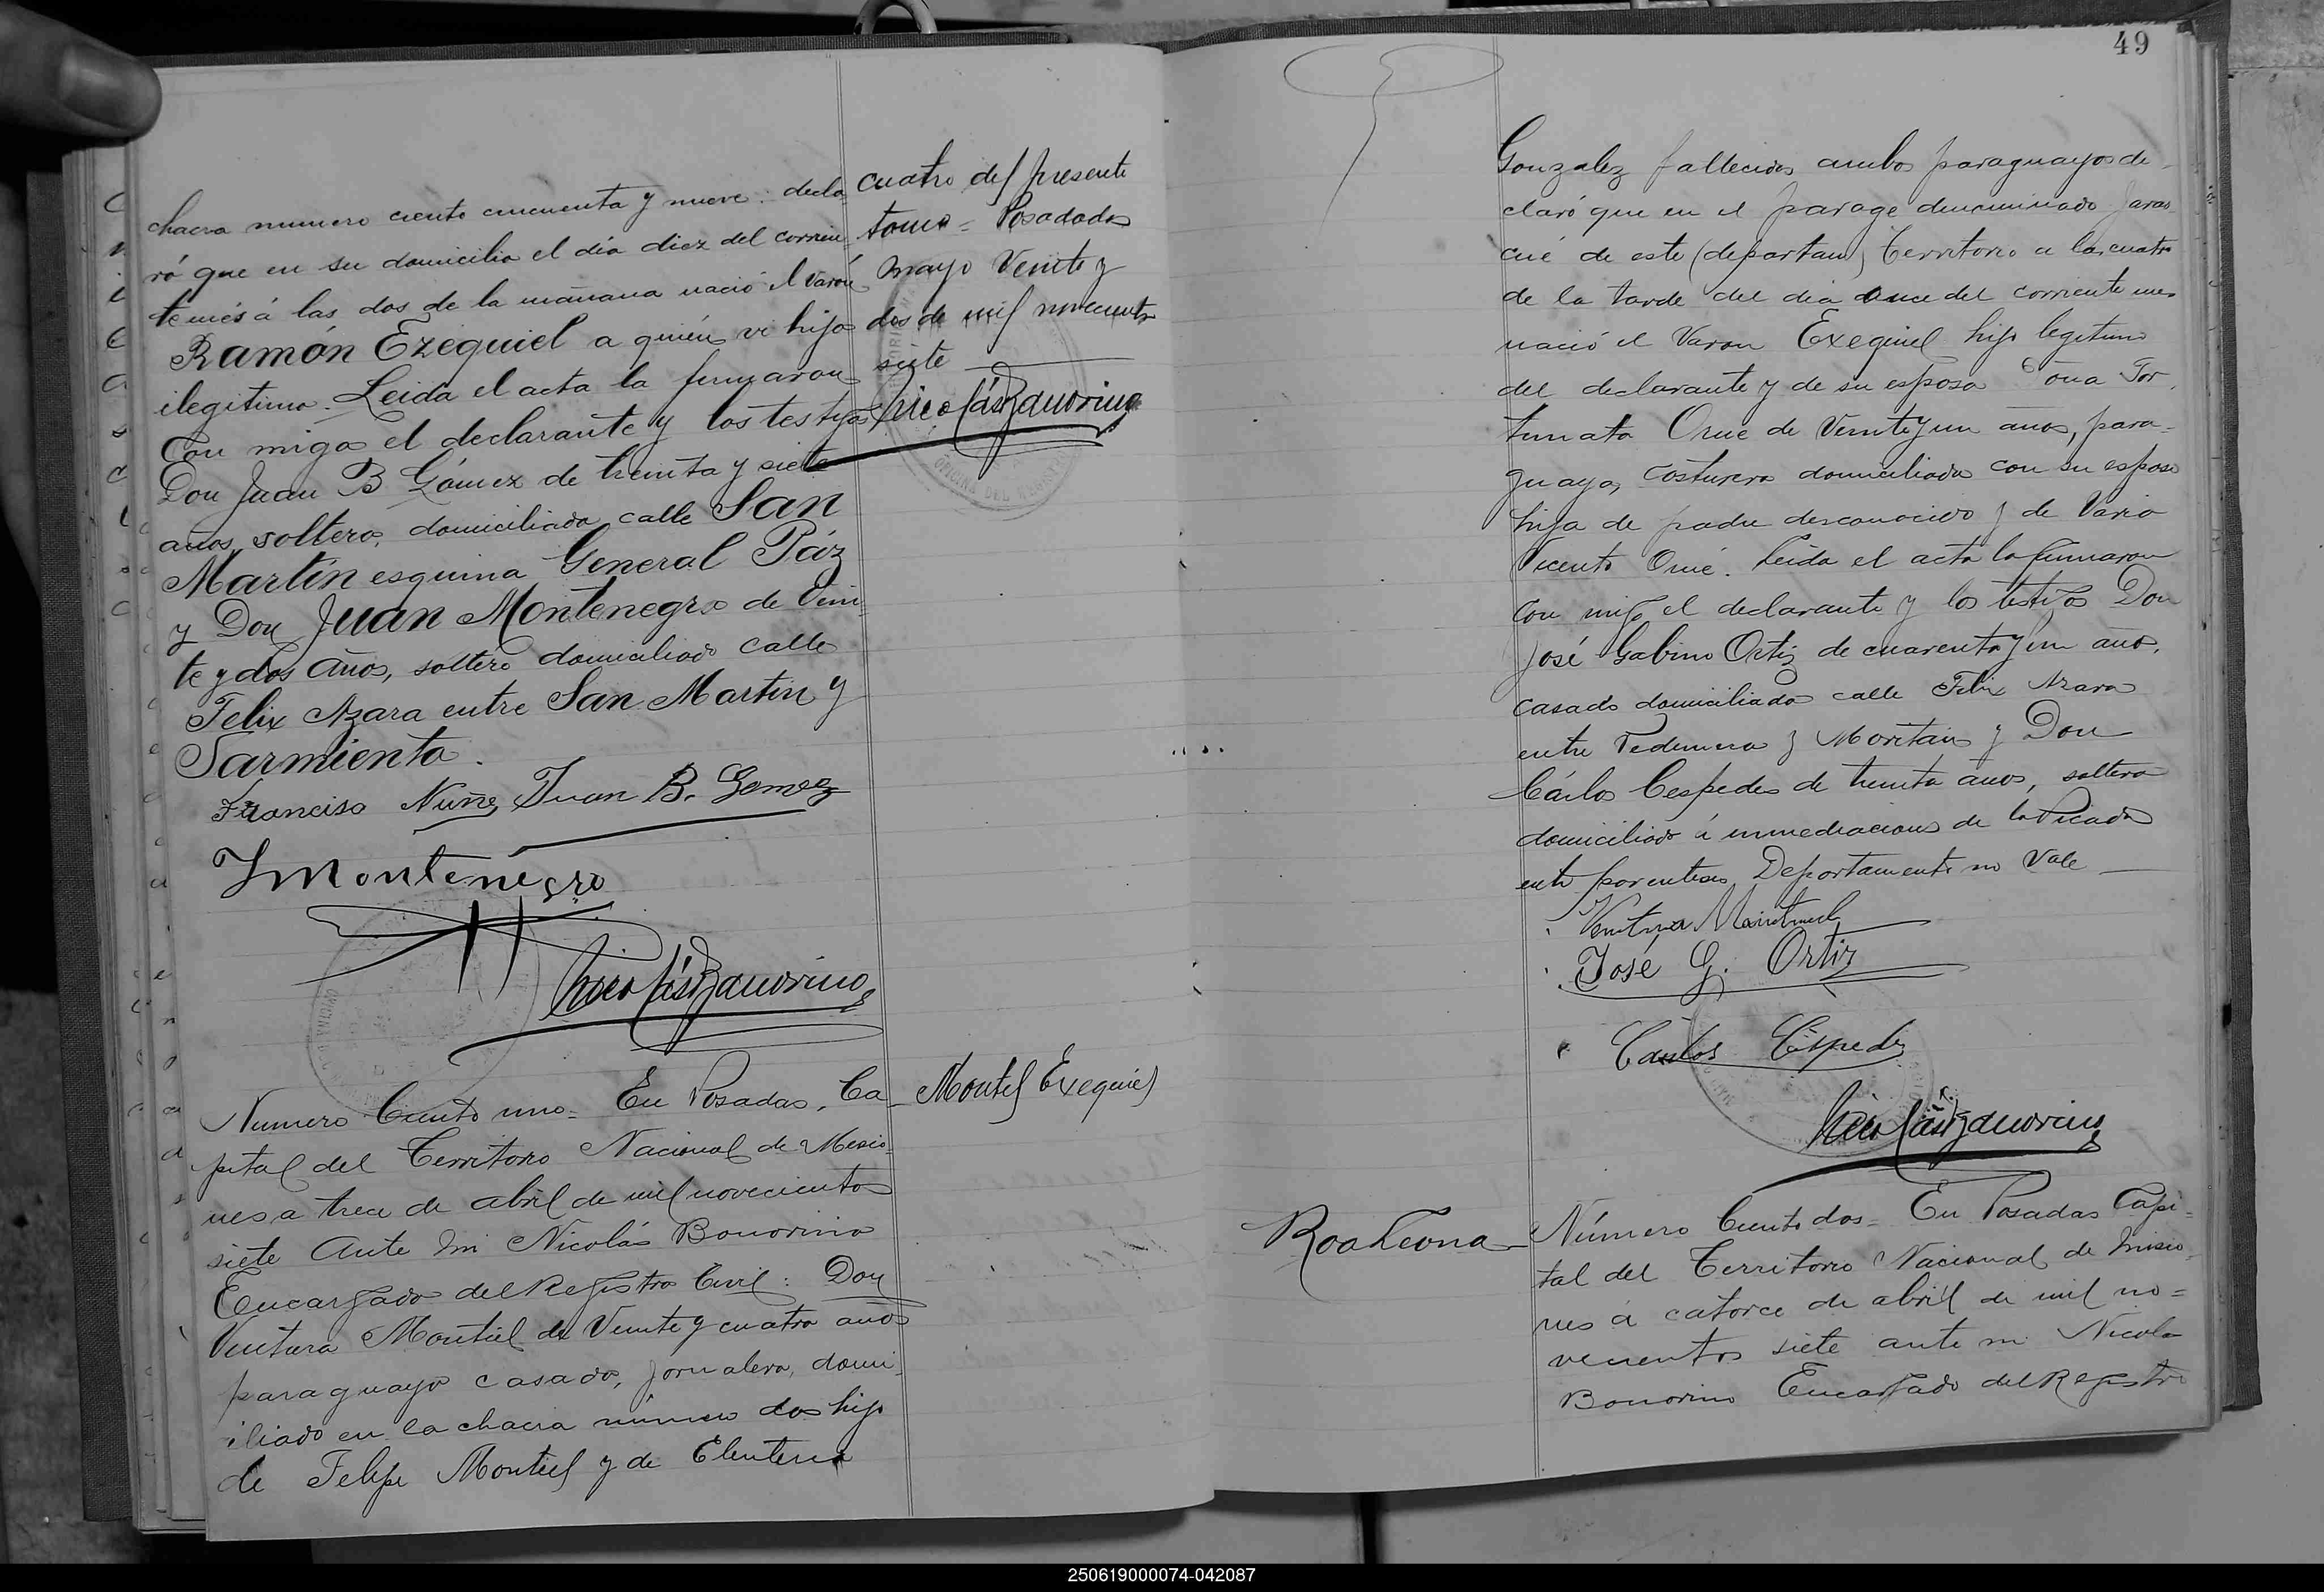 chacra numero ciento cincuenta y nueve: decla
ró que en su domicilio el día diez del corrien
te més á las dos de la mañana nació el varón
Ramón Ezequiel a quién vi hijo
ilegitimo. Leida el acta la firmaron
Con migo el declarante y los testigos
Don Juan B Gómez de treinta y siete
años, soltero, domiciliado calle San
Martín esquina General Páz
y Don Juan Montenegro de Vein
te y dos años, soltero domiciliado calle
Felix Azara entre San Martin y
Sarmiento.
Francisco Nuñez Juan B. Gomez
J Montenegro
Nicolás Bonorino
cuatro del presente
tomo = Posadas
mayo Veinte y
dos de mil novecientos
siete
Nicolás Bonorino
OFICINA DEL REGISTRO
Numero Ciento uno = En Posadas, Ca
Montiel Exequiel
pital del Territorio Nacional de Misio
nes a trece de abril de mil novecientos
siete Ante mi Nicolás Bonorino
Encargado del Registro Civil: Don
Ventura Montiel de Veinte y cuatro años
paraguayo casado, jornalero, domi
iliado en la chacra número dos hijo
de Felipe Montiel y de Eleuteria
49
Gonzalez fallecidos ambos paraguayos de
claró que en el parage denominado
cué de este (departam) Territorio a las cuatro
de la tarde del dia once del corriente mes
nació el Varon Exequiel hijo legitimo
del declarante y de su esposa Doña For
tunata Orue de Veinte y un años, para=
guaya, costurera domiciliada con su esposo
hija de padre desconocido y de
Vicenta Orué. Leida el acta la firmaron
con migo el declarante y los testigos Don
José Gabino Ortiz de cuarenta y un años,
casado domiciliado calle Felix Azara
entre Pedernera y y Don
Cárlos Cespedes de treinta años, soltero
domiciliado á inmediaciones de la Picada
entre parentesis Departamento no Vale
Ventura Montiel
José G. Ortiz
Carlos Cespedes
Nicolás Bonorino
Roa Leona
Número Ciento dos = En Posadas Capi=
tal del Territorio Nacional de Misio
nes á catorce de abril de mil no=
vecientos siete ante mi Nicolas
Bonorino Encargado del Registro
250619000074-042087